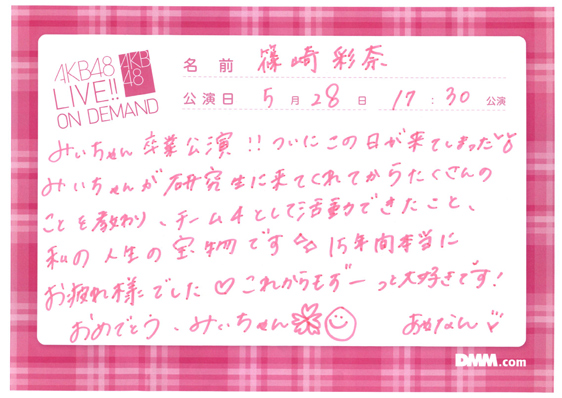 AKB48
LIVE!!
ON DEMAND
AKB
48
名前 篠崎彩奈
公演日 5月28日 17:30公演
みいちゃん卒業公演!!ついにこの日が来てしまった
みいちゃんが研究生に来てくれてからたくさんの
ことを教わり、チーム4として活動できたこと、
私の人生の宝物です 15年間本当に
お疲れ様でした♡これからもずーっと大好きです!
おめでとう、みいちゃん
あやなん
DMM.com